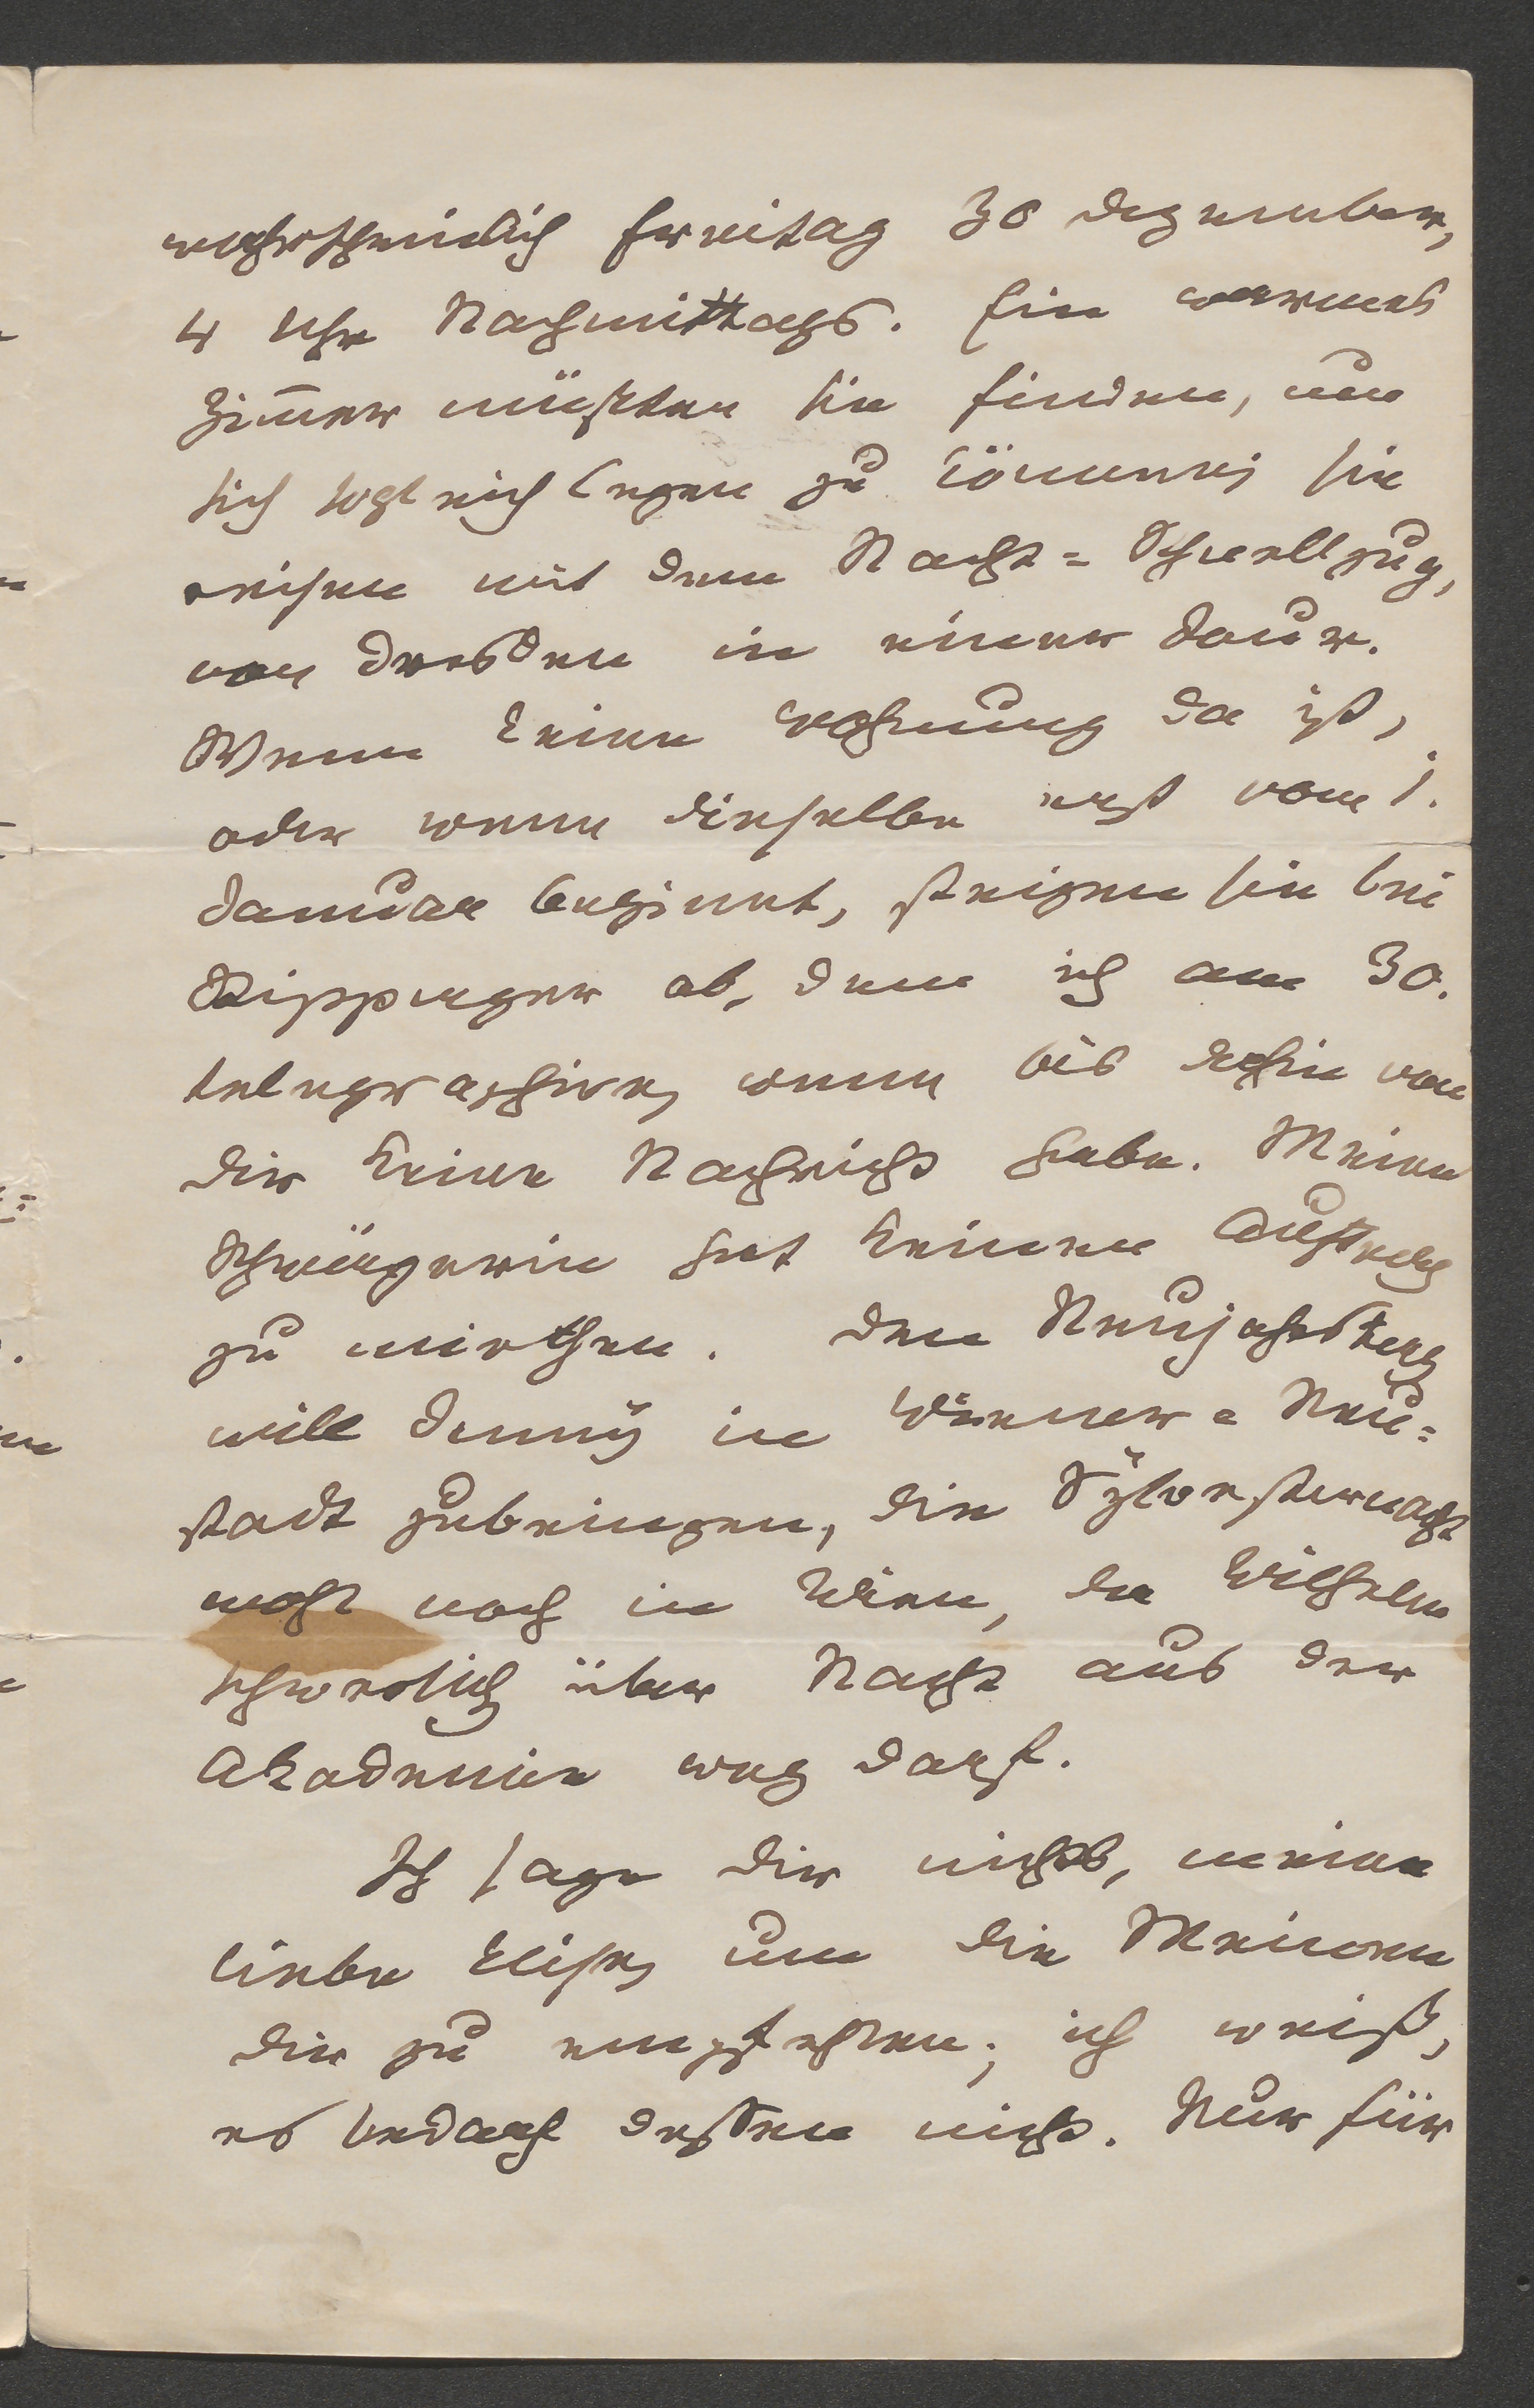 wahrscheinlich Freitag 30 Dezember,
4 Uhr Nachmittags. Ein warmes
Zim̅er müßten sie finden, um
sich sogleich legen zu können; sie
reisen mit dem Nacht=Schnellzug,
von Dresden in einer Tour.
Wenn keine Wohnung da ist,
oder wenn dieselbe erst vom 1.
Januar beginnt, steigen sie bei
ab, dem ich am 30.
telegraphire, wenn bis dahin von
dir keine Nachricht habe. Meine
Schwägerin hat keinen Auftrag
zu miethen. Den Neujahrstag
will Jenny in Wiener=Neu=
stadt zubringen, die Sylvesternacht
wohl noch in Wien, da Wilhelm
schwerlich über Nacht aus der
Akademie weg darf.
Ich sage dir nichts, meine
liebe Elise, um die Meinen
dir zu empfehlen; ich weiß,
es bedarf dessen nicht. Nur für